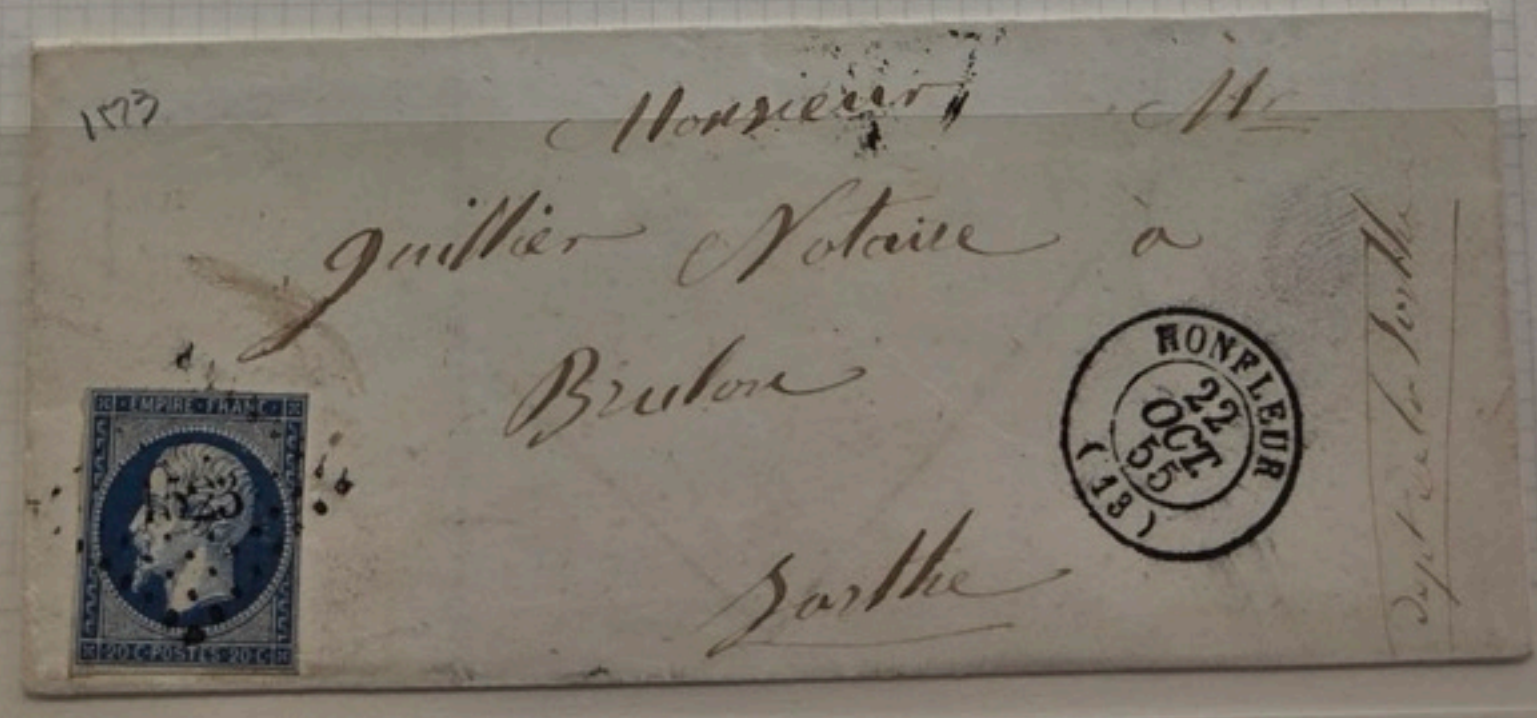 1523
Monsieur Mr
Guillier Notaire à
Brulon
Sarthe
HONFLEUR
22
OCT
55
(13)
Dept de la Sarthe
EMPIRE FRANC
1523
20 C POSTES 20 C